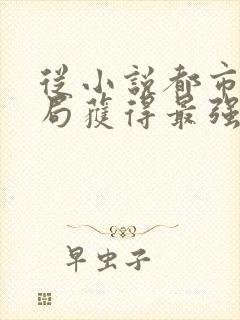 從小說都市
局獲得最強
早虫子